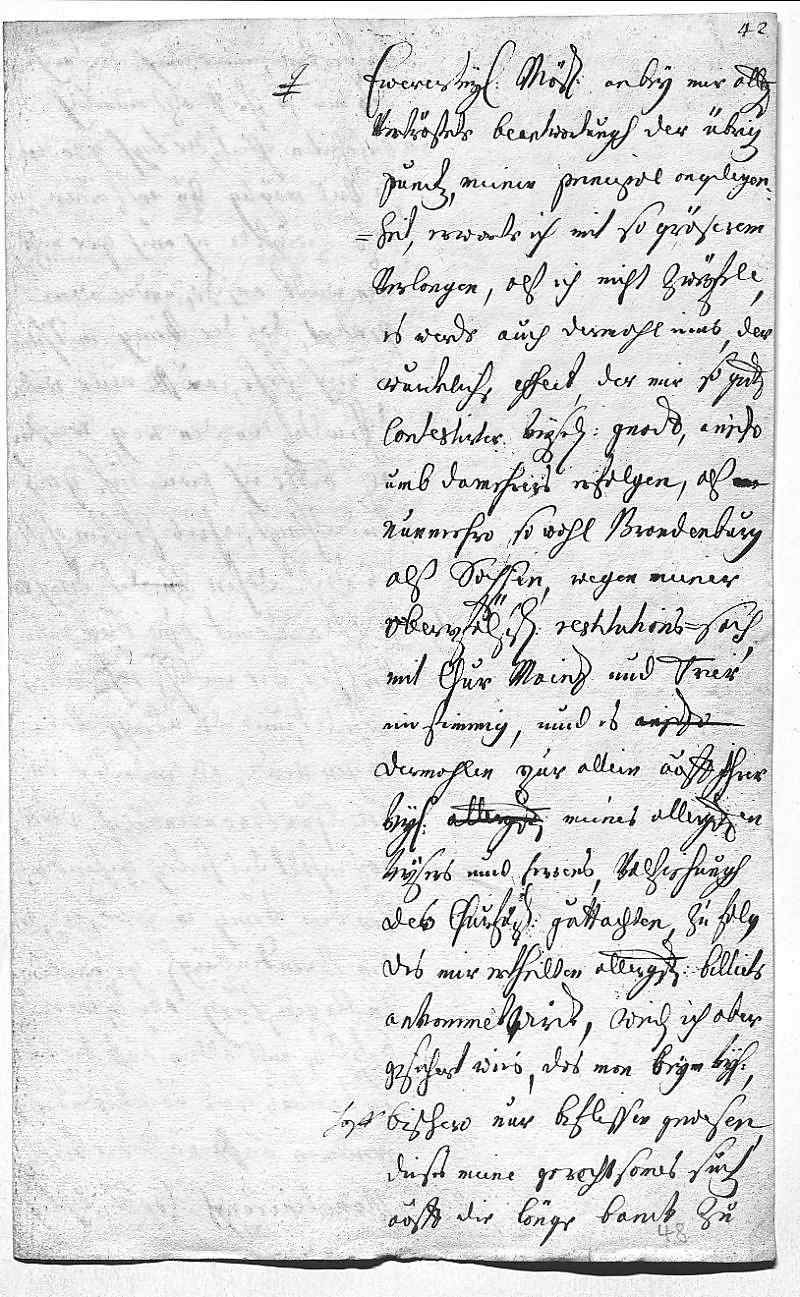 42
Ewerer keyß: Mäß: anbey mir allg
Vertröste beantwortungh der übrig
punctẽ, meiner principal angelegen-
=heit, erwarte ich mit so gröserem
Verlangen, alß ich nicht zweyfele,
es werde auch dermahl eins, der
würckliche effect der mir so
contestirter keyserl: gnade,
umb da mehrers erfolgen, alß
nunmehro so wohl Brandenburg
alß Sachsen, wegen meiner
restitutions=sach,
mit Chur Maintz und Trier
einstimmig, und es
dermahlen nur allein auff Ihrer
key: allergdst: meines allergdsten
keysers und herrens, Vollziehungh
des Churfürstl: guttachten, zu folg
des mir ertheilten allergdst: billiets
ankommet wirdt, ich aber
gesichert wird, das man beym key:
hoff bishero nur beflissen gewesen,
diese meine gerechtsames such
auff die länge banck zu
48